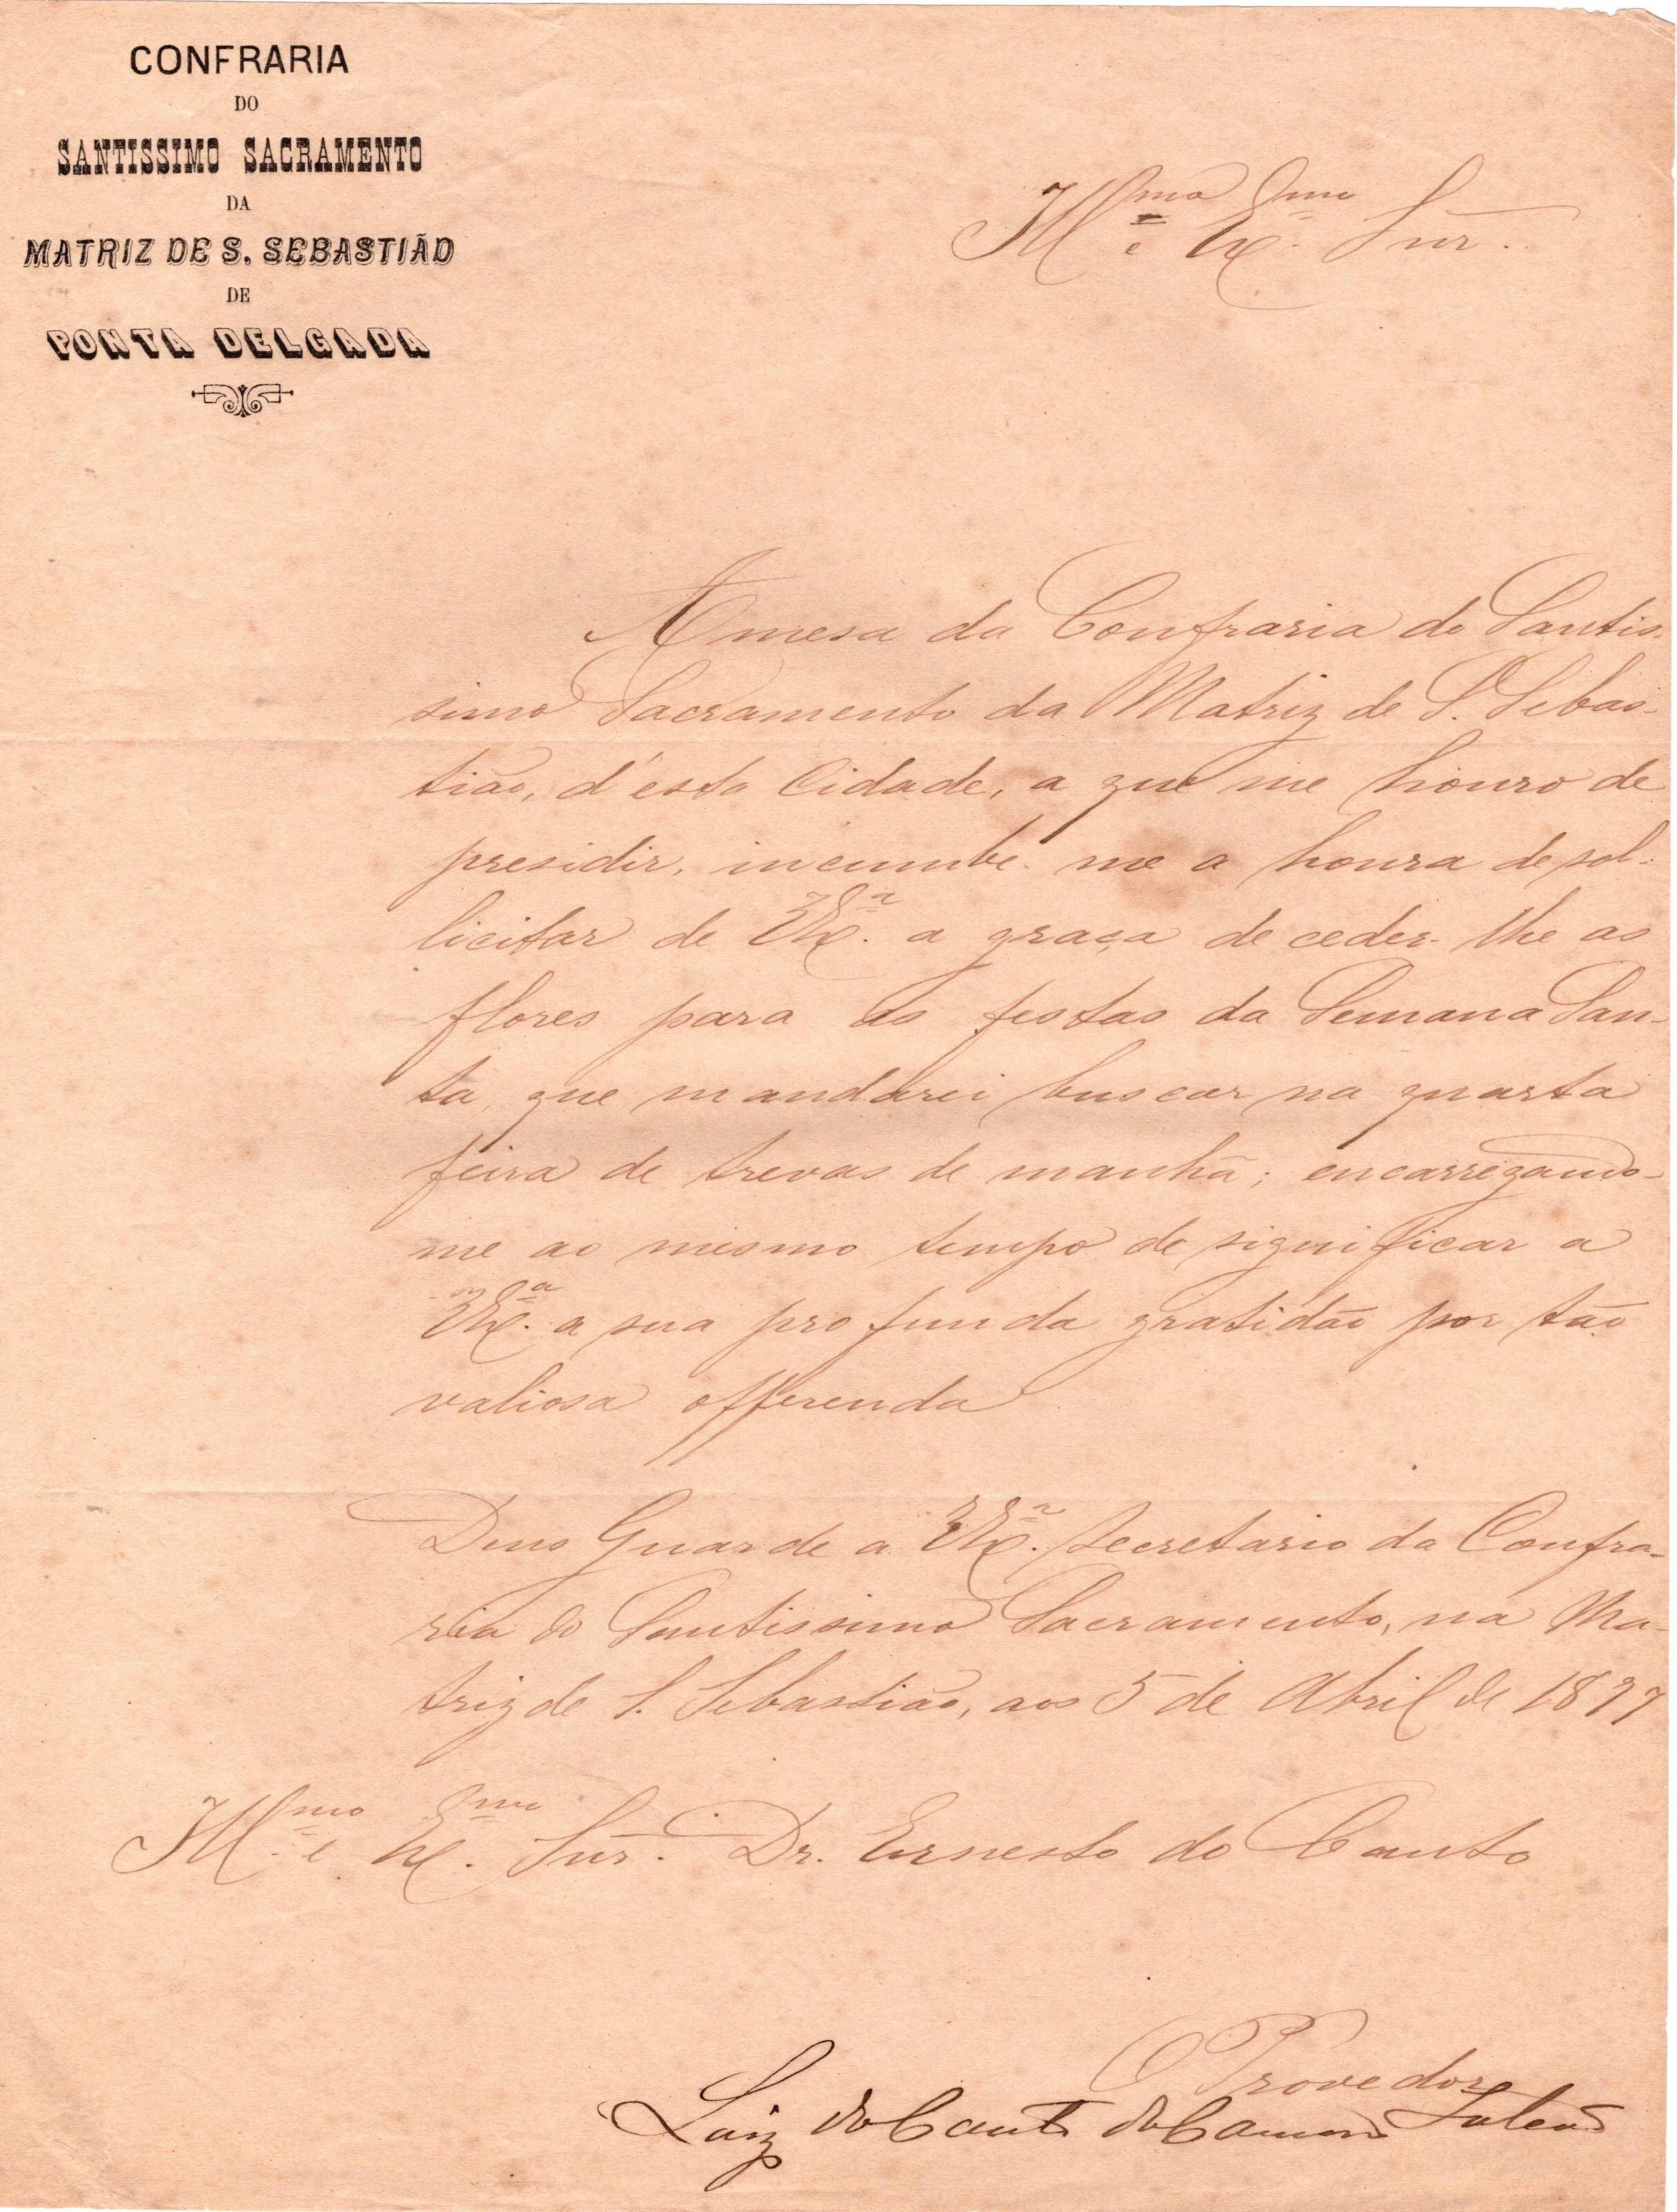 CONFRARIA
DO
SANTISSIMO SACRAMENTO
DA
MATRIZ DE S. SEBASTIÃO
DE
PONTA DELGADA
Illmo e Exmo Snr.
A mesa da Confraria do Santis-
simo Sacramento da Matriz de S. Sebas-
tião, d'esta Cidade, a que me honro de
presidir, incumbe-me a honra de sol-
licitar de VExa. a graça de ceder-lhe as
flores para as festas da Semana San-
ta, que mandarei buscar na quarta
feira de trevas de manhã; encarregando-
me ao mesmo tempo de significar a
VExa. a sua profunda gratidão por tão
valiosa offerenda
Deus Guarde a VExa. Secretario da Confra-
ria do Santissimo Sacramento, na Ma-
triz de S. Sebastião, aos 5 de Abril de 1897
Illmo e Exmo. Snr. Dr. Ernesto do Canto
O Provedor
Luiz do Canto da Camara Falcão